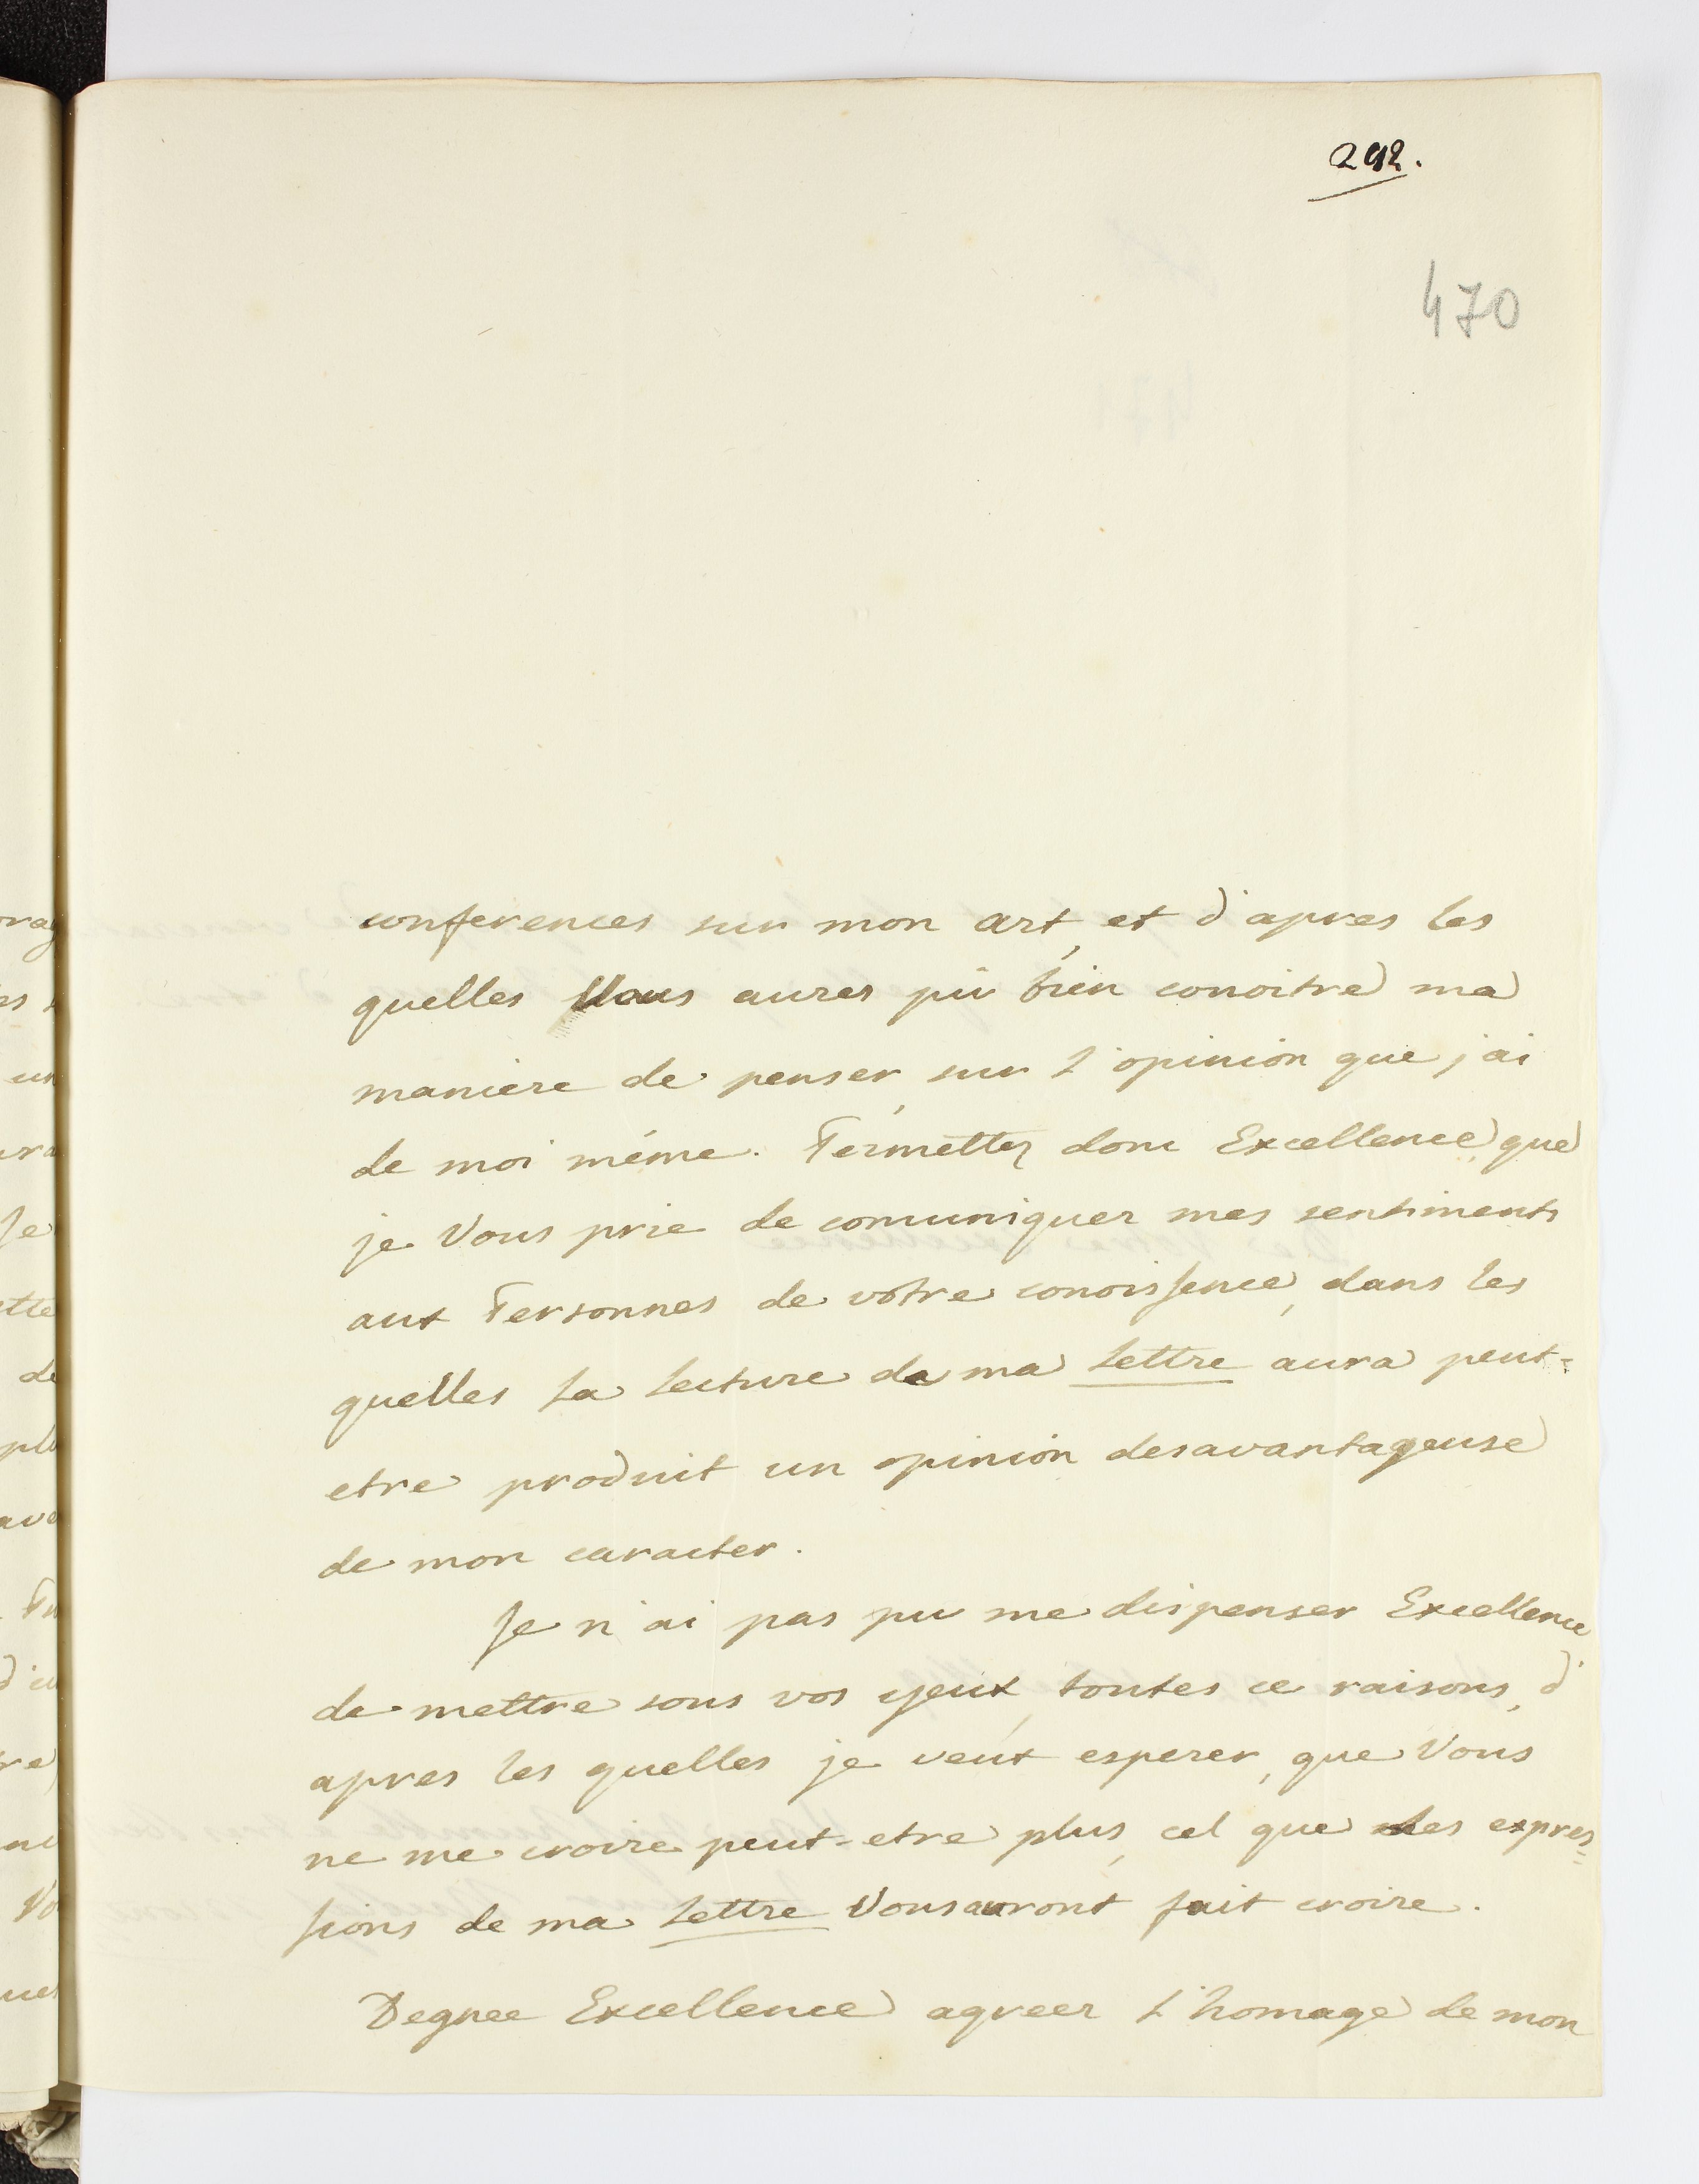 292.
470
conferences sur mon art, et d'apres les
quelles Vous aures pû bien conoitre ma
maniere de penser, sur l'opinion que j'ai
de moi même. Permettez donc Excellence, que
je Vous prie de comuniquer mes sentiments
aux Personnes de votre conoissence, dans les
quelles la lecture de ma Lettre aura peut-
etre produit un opinion desavantageuse
de mon caracter.
Je n'ai pas pu me dispenser Excellence
de mettre sous vos yeux, toutes ce raisons, d'
apres les quelles je veut esperer, que Vous
ne me croire peut-etre plus, cel que les expres=
sions de ma Lettre Vous auront fait croire.
Degnee Excellence agreer l'homage de mon